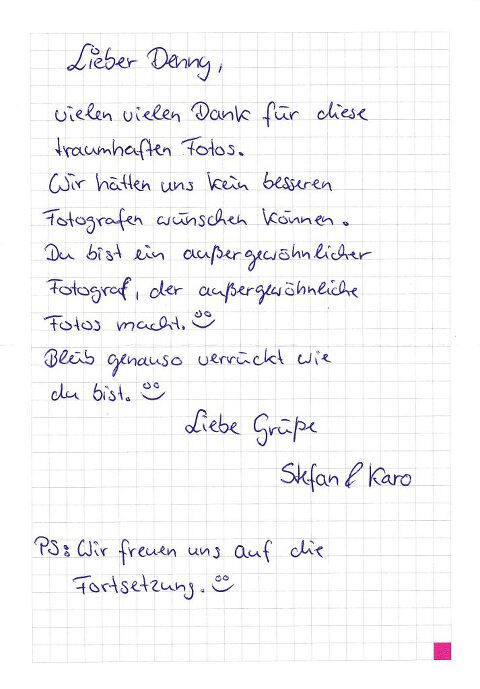 Lieber Denny,
vielen vielen Dank für diese
traumhaften Fotos.
Wir hätten uns kein besseren
Fotografen wünschen können.
Du bist ein außergewöhnlicher
Fotograf, der außergewöhnliche
Fotos macht.
Bleib genauso verrückt wie
du bist.
Liebe Grüße
Stefan & Karo
PS: Wir freuen uns auf die
Fortsetzung.